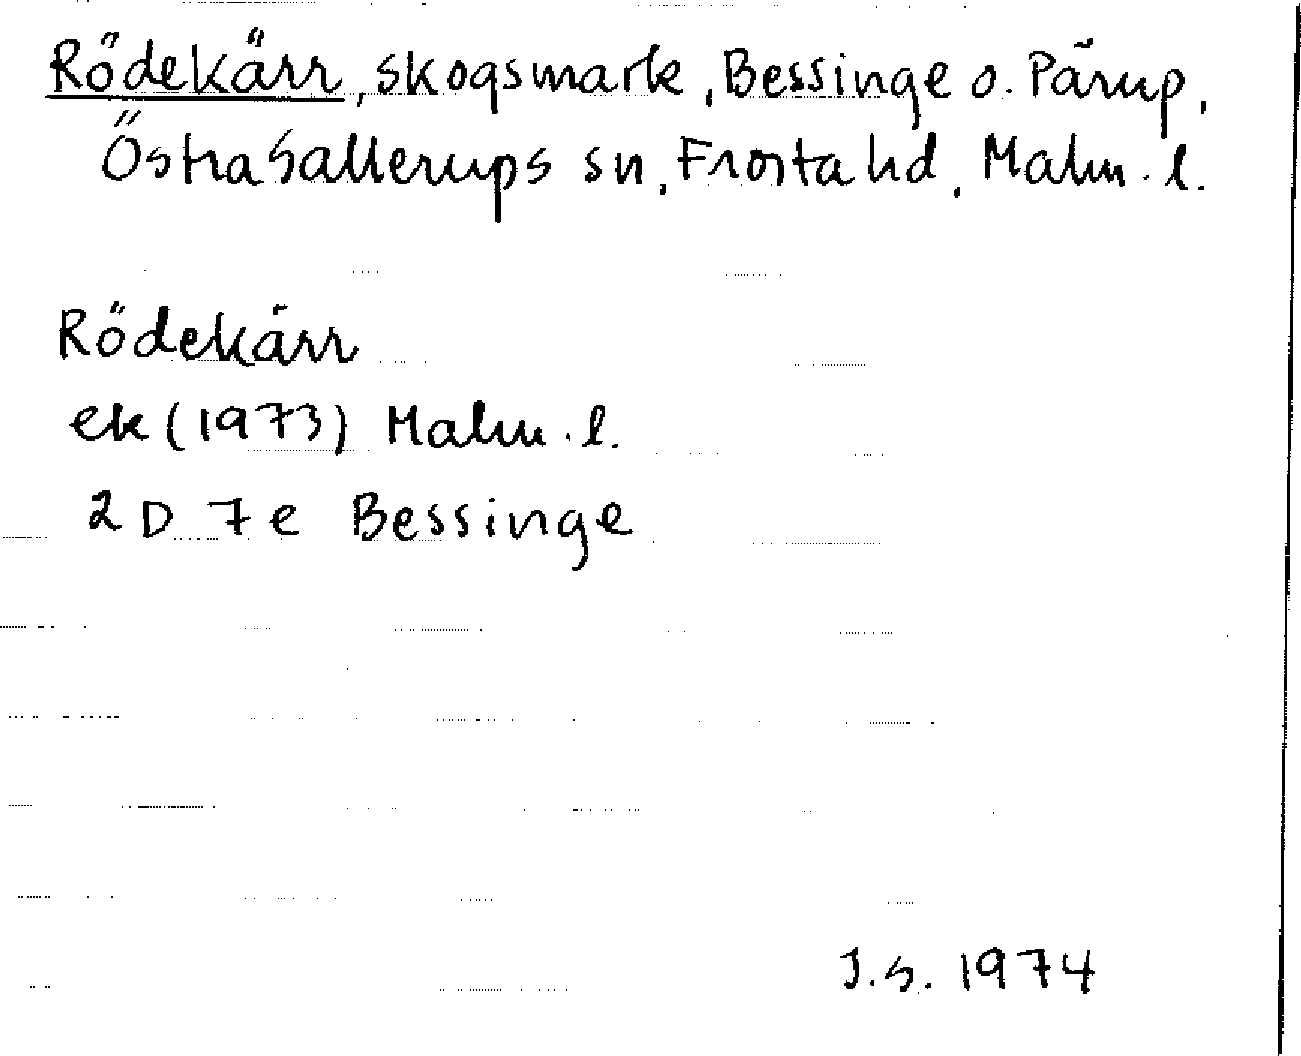 Rödekärr, skogsmark, Bessinge o. Pärup,
Östra Sallerups sn, Frosta hd, Malm. l.
Rödekärr
ek (1973) Malm. l.
2 D 7 e Bessinge
I.S. 1974